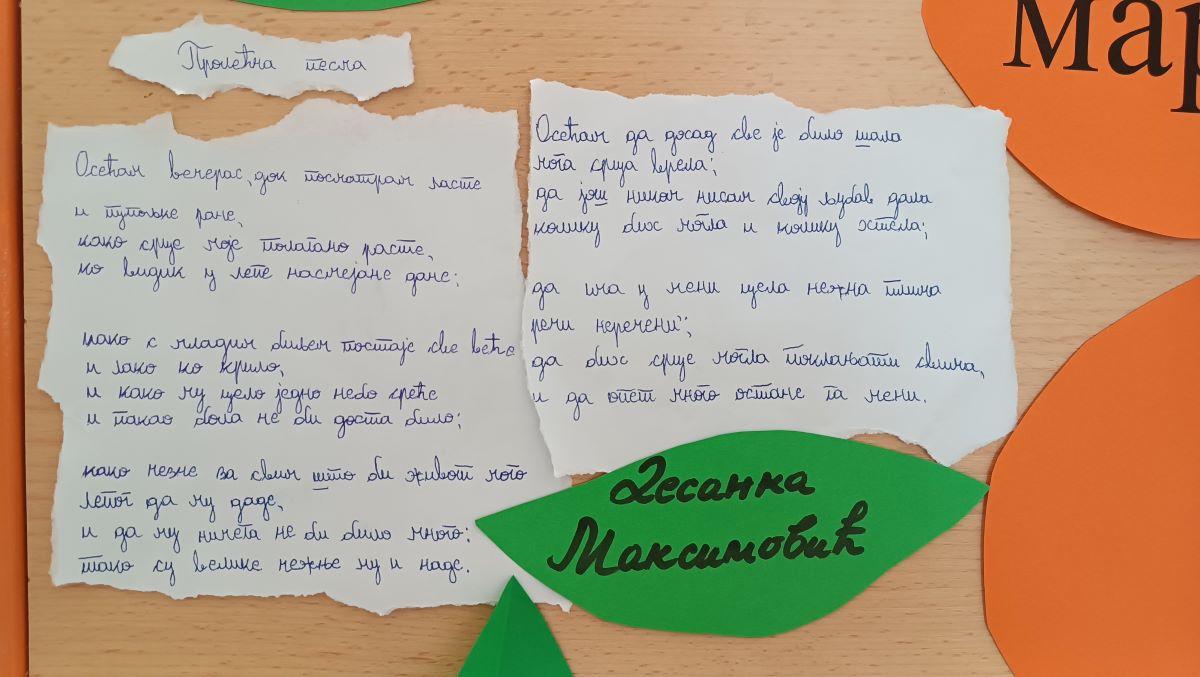 Пролећна песма
Осећам вечерас, док посматрам ласте
и пупољке ране,
како срце моје полагано расте,
ко видик у лепе насмејане дане;
како с младим биљем постаје све веће
и лако ко крило,
и како му цело једно небо среће
и пакао бола не би доста било;
како чезне за свим што би живот мого
лепог да му даде,
и да му ничега не би било много:
тако су велике чежње му и наде.
Осећам да досад све је било шала
мога срца врела;
да још ником нисам своју љубав дала
колику бих могла и колику хтела;
да има у мени цела нежна плима
речи неречени";
да бих срце могла поклањати свима,
и да опет много остане га мени.
Десанка
Максимовић
мар